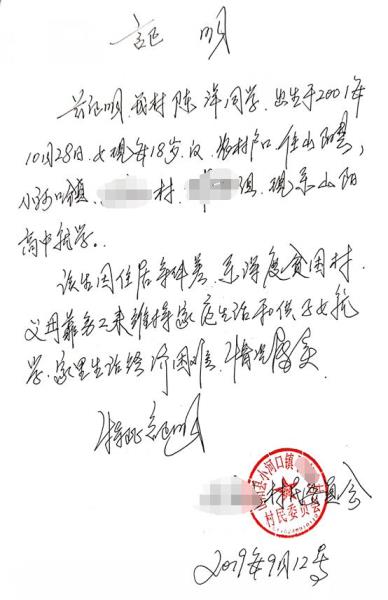 证明
兹证明，我村陈洋同学，出生于2001年
10月28日，女，现年18岁，汉，农村户口，住山阳县，
小河口镇，村，组，现系山阳
高中就学。
该生因住居条件差，系深度贫困村，
父母靠务工来维持家庭生活和供子女就
学，家里生活经济困难，情况属实
特此证明
村民委员会
小河口镇
村民委员会
2019年9月12号